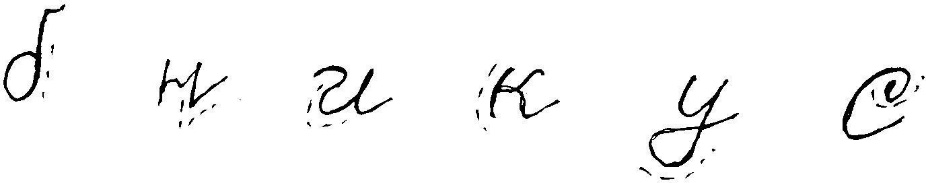 б н и к у с